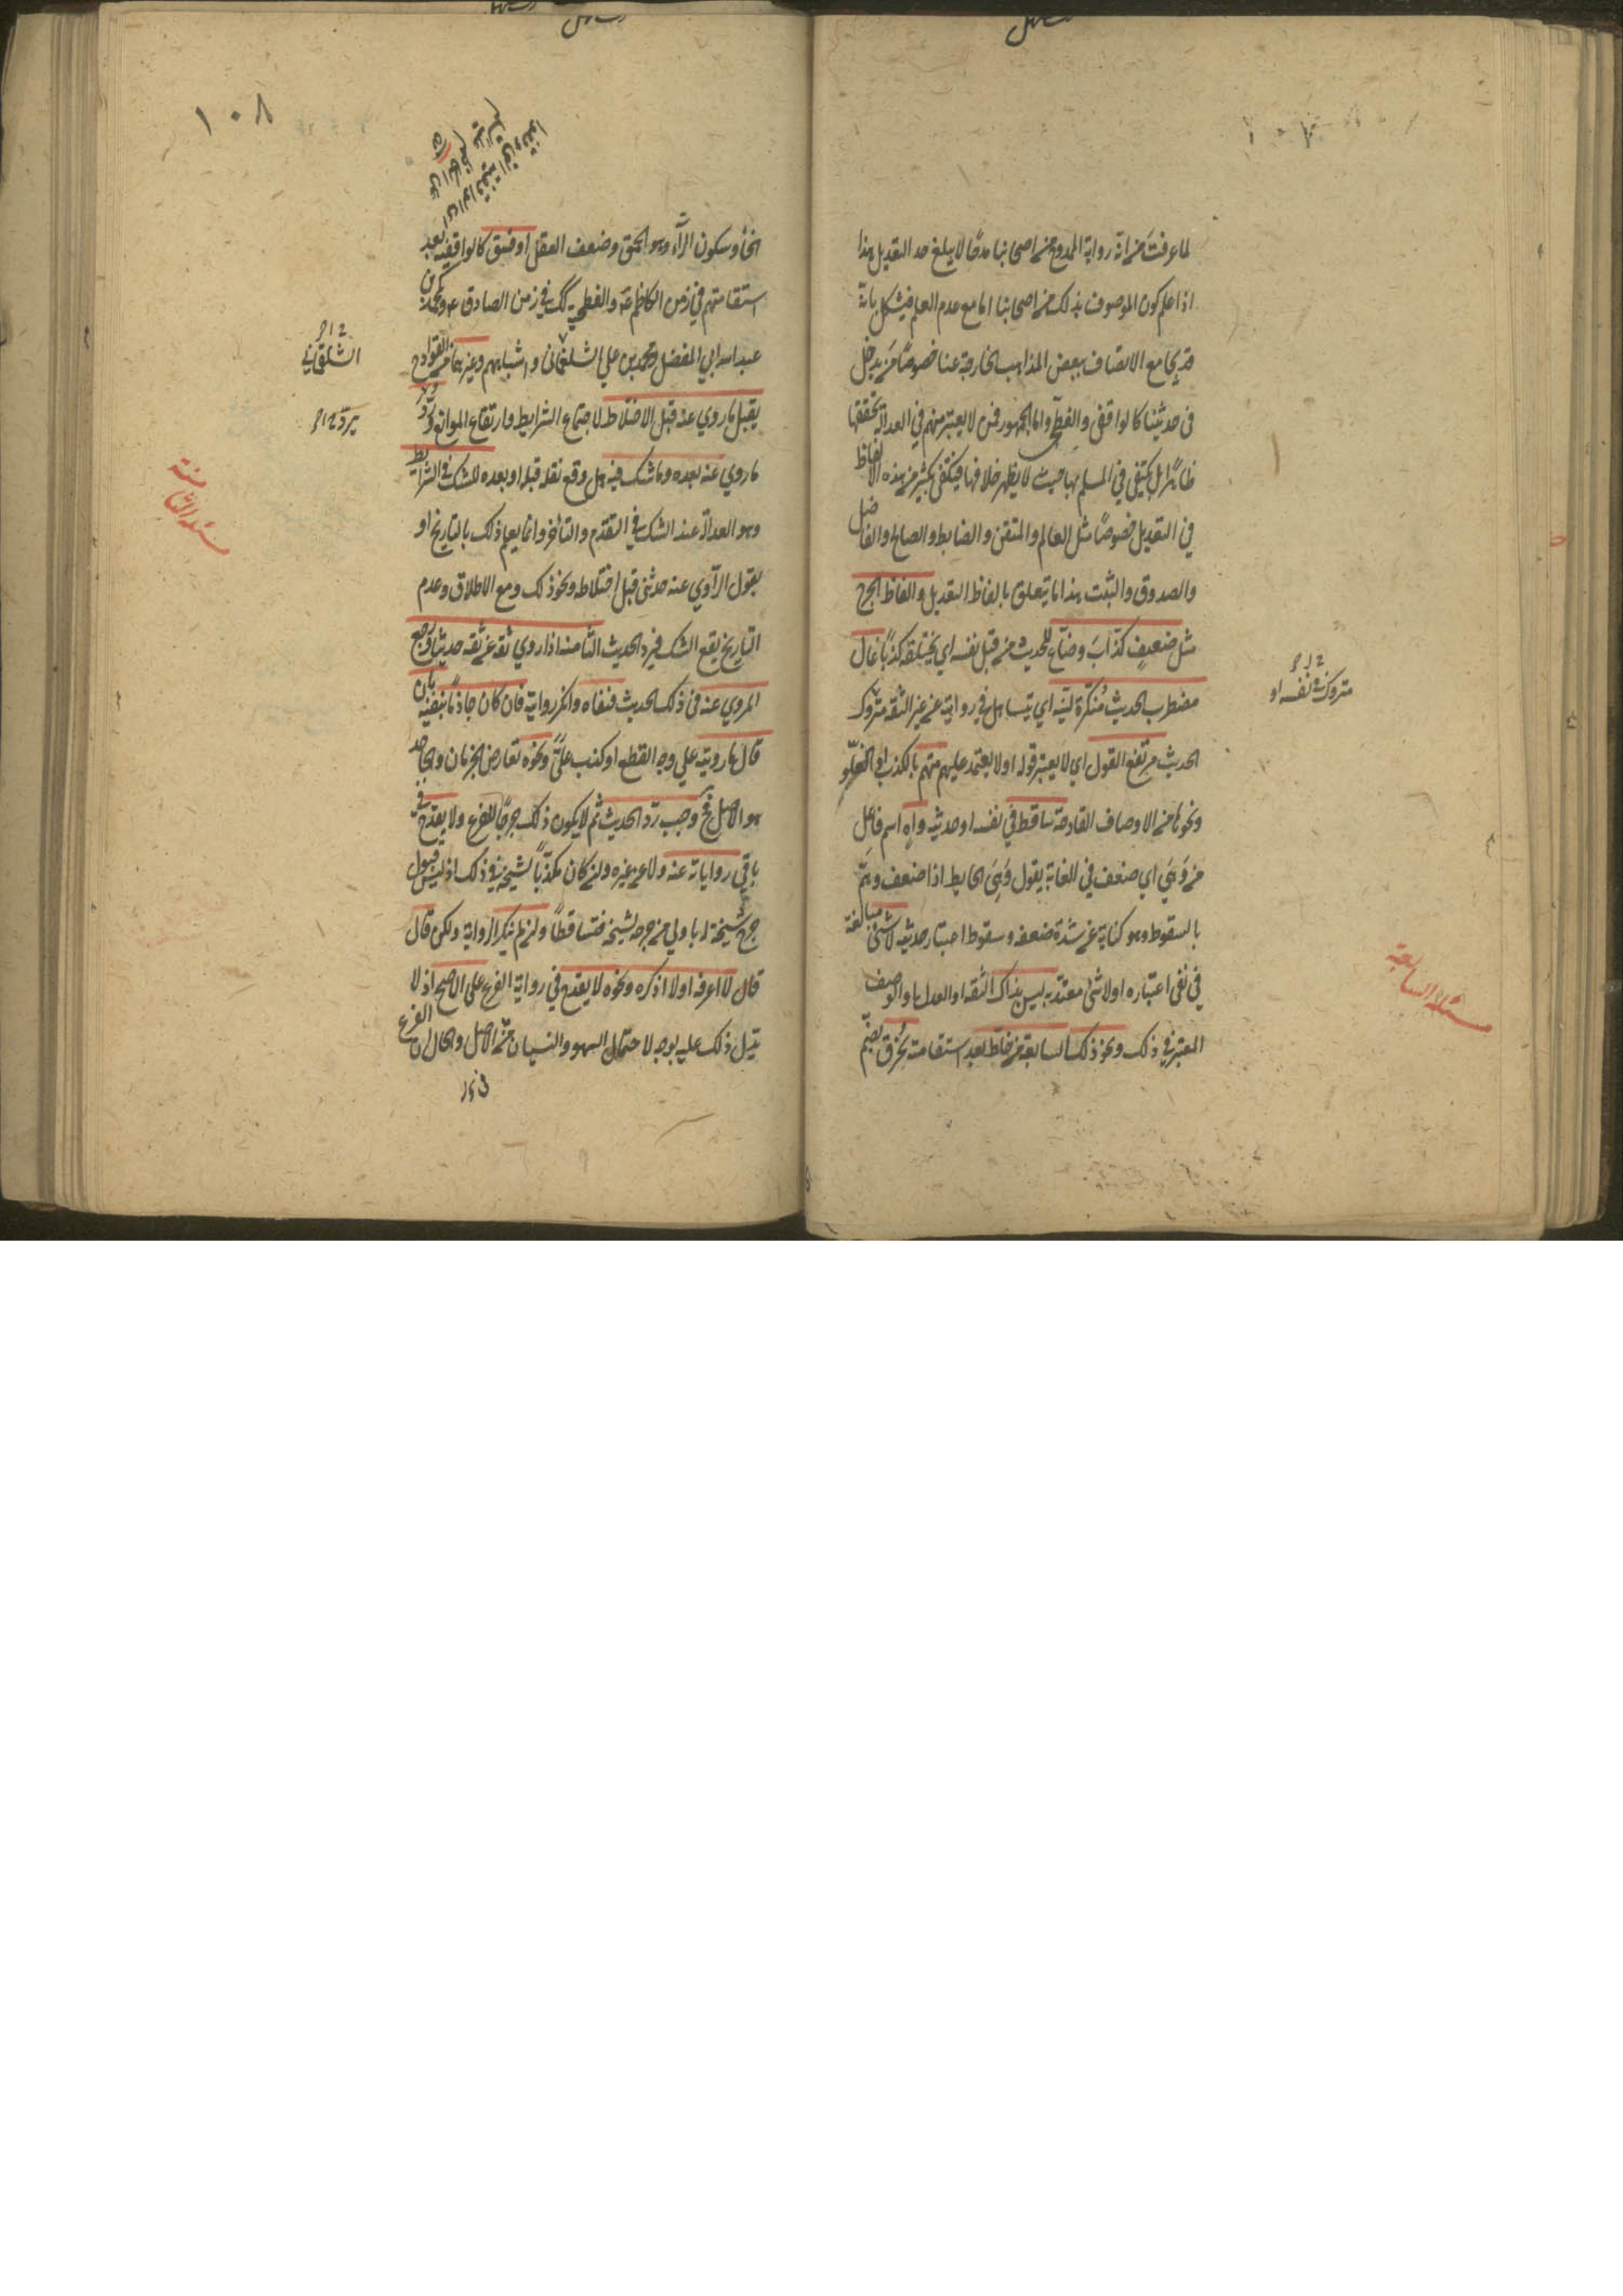 ١٠٧
لما عرفت من انه رواية الممدوح من اصحابنا مدحا لا يبلغ حد التعديل هذا
اذا علم كون الموصوف بذلك من اصحابنا اما مع عدم العلم فيشكل بانه
قد يجامع الاتصاف ببعض المذاهب الخارجة عنا خصوصًا من يدخل
في حديثنا كالواقفي والفطحي واما الجمهور فمن لا يعتبر منهم في العدالة تحققها
ظاهرًا بل يكتفي في المسلم بها حيث لا يظهر خلافها فيكتفي بكثير من هذه الالفاظ
في التعديل خصوصًا مثل العالم والمتقن والضابط والصالح والفاضل
والصدوق والثبت هذا ما يتعلق بالفاظ التعديل والفاظ الجرح
مثل ضعيف كذاب وضاع للحديث من قبل نفسه اي يختلقه كذبًا غال
مضطرب الحديث منكرة لينه اي يتساهل في روايته عن غير الثقة متروك
متروك في نفسه او
الحديث مرتفع القول اي لا يعتبر قوله او لا يعتمد عليه متهم بالكذب او الغلو
ونحوها من الاوصاف القادحة ساقط في نفسه او حديثه واهٍ اسم فاعل
من وَهَي اي ضعف في الغاية يقول وَهَي الحايط اذا ضعف وهمّ
بالسقوط وهو كناية عن شدة ضعفه وسقوط اعتبار حديثه لا شئ مبالغة
في نفي اعتباره او لا شئ معتد به ليس بذاك الثقة او العدل او الوصف
المعتبر في ذلك ونحو ذلك السابعة من خلط بعد استقامته بخُرق بضم
مسئله السابعة
١٠٨
الخاء وسكون الرّاء وهو الحمق وضعف العقل او فسق كالواقفية بعد
استقامتهم في زمن الكاظم ع والفطحية كك في زمن الصادق ع ومحمد بن
عبدالله ابي المفضل ومحمد بن علي الشلمغاني واشباههم وغيرها من القوادح
الشلمغاني
يقبل ما روي عنه قبل الاختلاط لاجتماع الشرايط وارتفاع الموانع ويردّ
يردّ
ما روي عنه بعده وما شك فيه هل وقع نقله قبله او بعده للشك في الشرط
وهو العدالة عند الشك في التقدم والتاخر وانما يعلم ذلك بالتاريخ او
بقول الرّاوي عنه حدثني قبل اختلاطه ونحو ذلك ومع الاطلاق وعدم
التاريخ يقع الشك فيرد الحديث الثامنه اذا روي ثقة عن ثقة حديثا ورجع
المروي عنه في ذلك الحديث فنفاه وانكر روايته فان كان جازمًا بنفيه بان
قال ما رويته علي وجه القطع او كذب عليّ ونحوه تعارض الجزمان والجاحد
هو الاصل فح وجب ردّ الحديث ثم لا يكون ذلك جرحًا للفرع ولا يقدح في
باقي رواياته عنه ولا عن غيره وان كان مكذبًا لشيخه في ذلك اذ ليس قبول
جرح شيخه له باولي من جرحه لشيخه فتساقطا وان لم ينكر الرواية ولكن قال
قال لا اعرفه او لا اذكره ونحوه لا يقدح في رواية الفرع علي الاصح اذ لا
يدل ذلك عليه بوجه لاحتمال السهو والنسيان من الاصل والحال ان الفرع
مسئله الثامنة